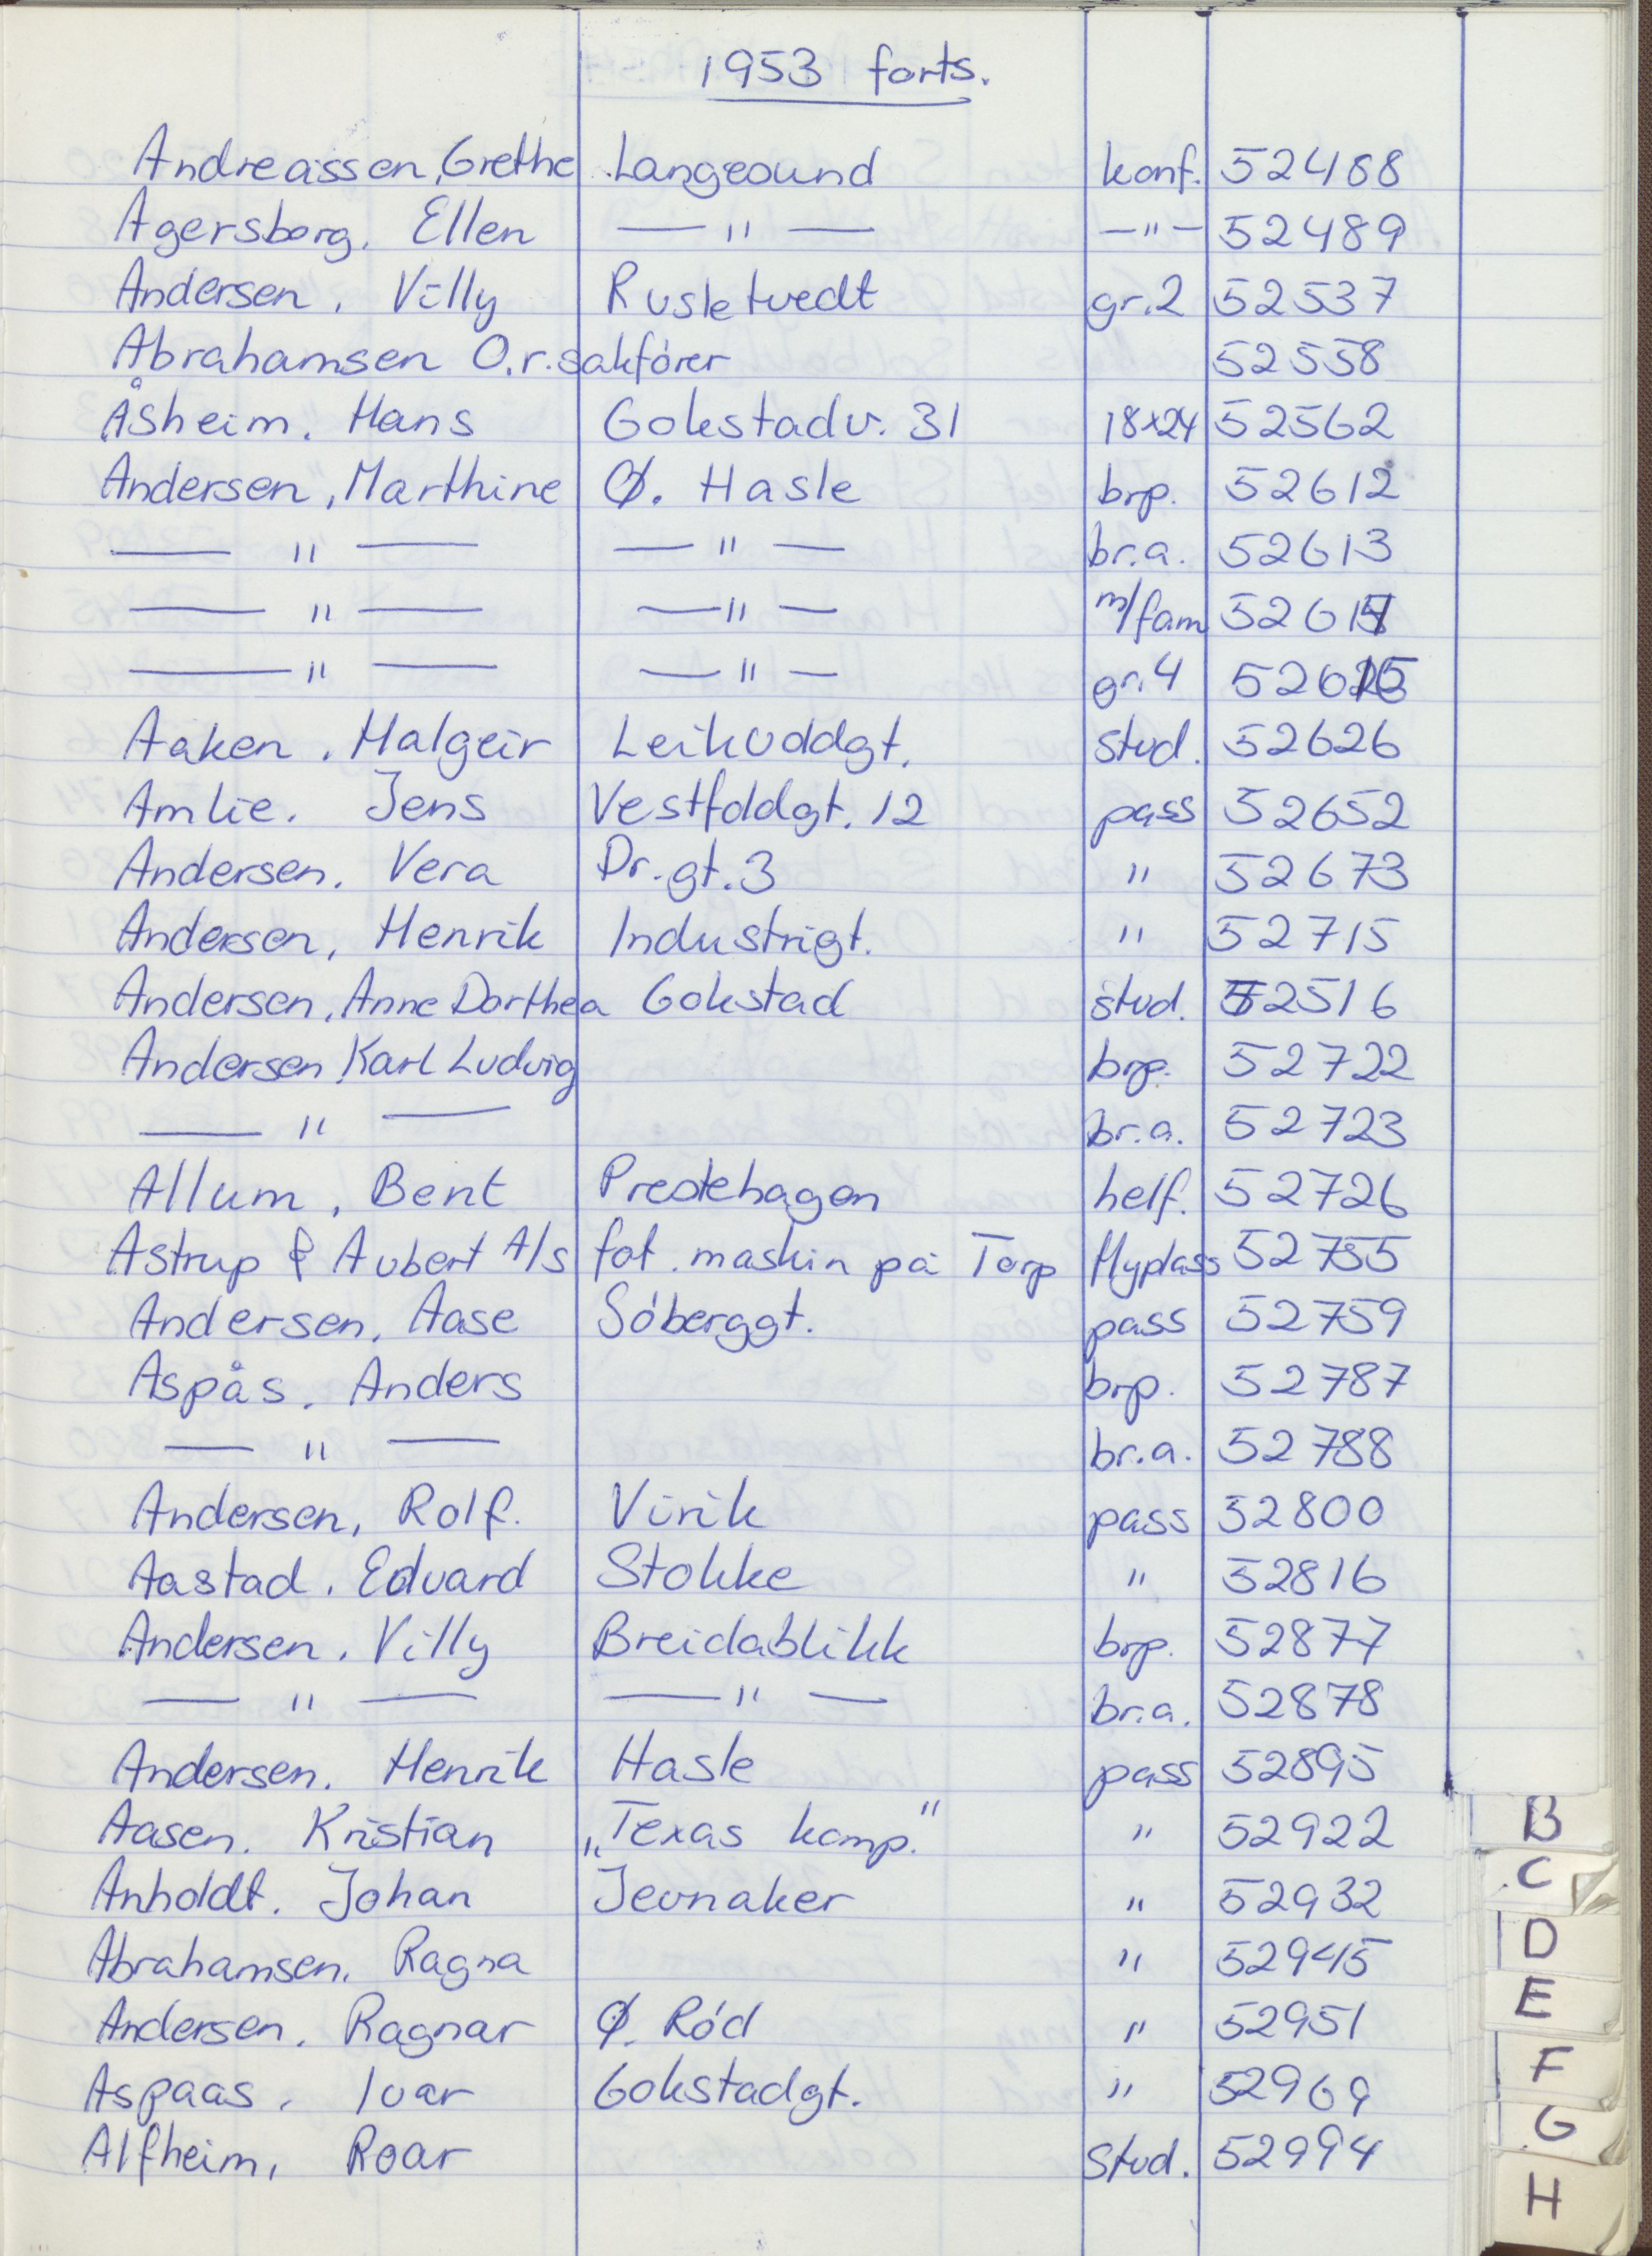 1953 forts.
Andreassen, Grethe Langesund konf. 52488
Agersborg. Ellen — " — — " — 52489
Andersen. Villy Rusletvedt gr. 2 52537
Abrahamsen O.r. sakfórer 52558
Åsheim. Hans Gokstadv. 31 18x24 52562
Andersen, Marthine Ø. Hasle brp. 52612
— " — — " — br.a. 52613
— " — — " — m/fam 52614
— " — — " — gr. 4 52615
Aaken. Halgeir Leikvollgt. stud. 52626
Amlie. Jens Vestfoldgt. 12 pass 52652
Andersen. Vera Dr. gt. 3 " 52673
Andersen, Henrik Industrigt. " 52715
Andersen, Anne Dorthea Gokstad stud. 52516
Andersen, Karl Ludvig brp. 52722
— " — br.a. 52723
Allum, Bent Prestehagen helf. 52726
Astrup & Aubert A/s fot. maskin på Torp Hyplass 52755
Andersen, Aase Sóberggt. pass 52759
Aspås. Anders brp. 52787
— " — br.a. 52788
Andersen, Rolf. Virik pass 52800
Aastad. Edvard Stokke " 52816
Andersen. Villy Breidablikk brp. 52877
— " — — " — br.a. 52878
Andersen. Henrik Hasle pass 52895
Aasen. Kristian „Texas komp." " 52922
Anholdt. Johan Jevnaker " 52932
Abrahamsen. Ragna " 52945
Andersen. Ragnar Ø. Ród " 52951
Aspaas. Ivar Gokstadgt. " 52969
Alfheim, Roar Stud. 52994
B
C
D
E
F
G
H